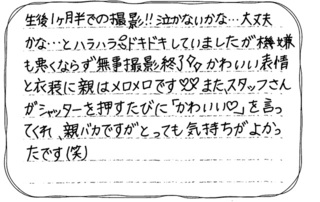 生後1ヶ月半での撮影!!泣かないかな…大丈夫
かな…とハラハラドキドキしていましたが機嫌
も悪くならず無事撮影終了かわいい表情
と衣装に親はメロメロです♡♡また、スタッフさん
がシャッターを押すたびに「かわいい♡」を言っ
てくれ、親バカですがとっても気持ちがよかっ
たです(笑)